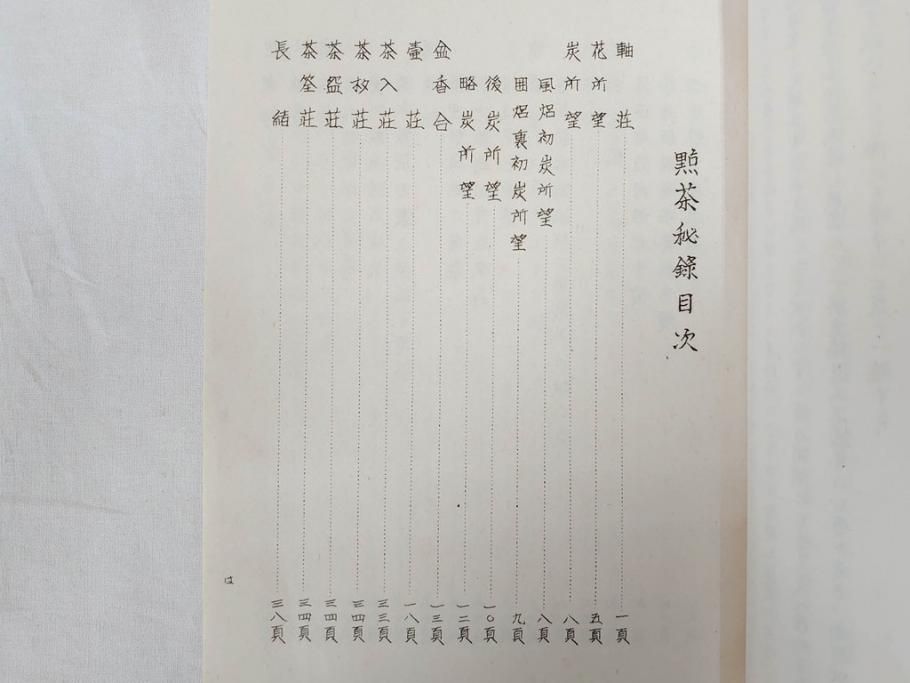 點茶秘錄目次
軸荘 一頁
花所望 五頁
炭所望 八頁
風炉初炭所望 八頁
囲炉裏初炭所望 九頁
後炭所望 一〇頁
略炭所望 一二頁
盆香合 一三頁
壷荘 一八頁
茶入荘 三三頁
茶杓荘 三四頁
茶盌荘 三四頁
茶筌荘 三四頁
長緒 三八頁
は